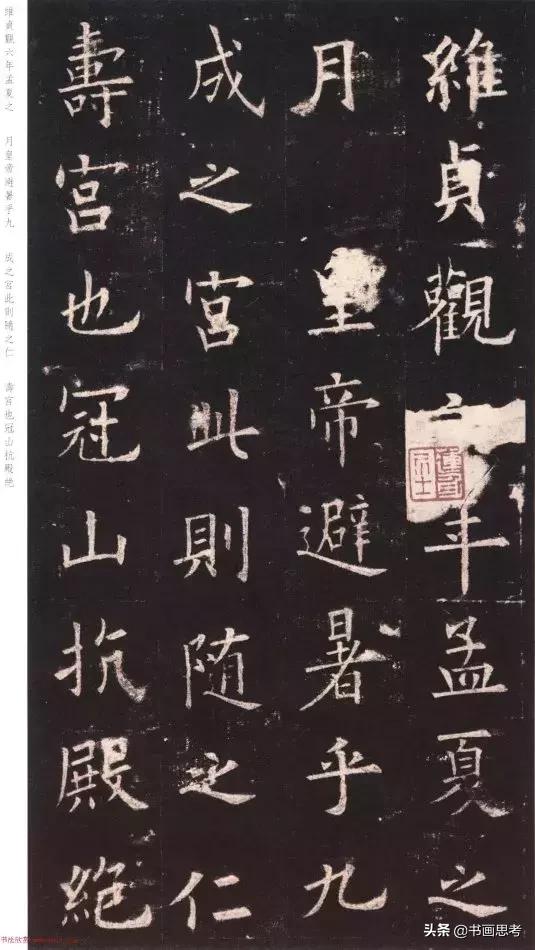 維貞觀六年孟夏之
月皇帝避暑乎九
成之宮此則随之仁
壽宮也冠山抗殿絶
维貞觀六年孟夏之 月皇帝避暑乎九 成之宮此則隨之仁 壽宮也冠山抗殿绝
书法欣赏
头条 @书画思考